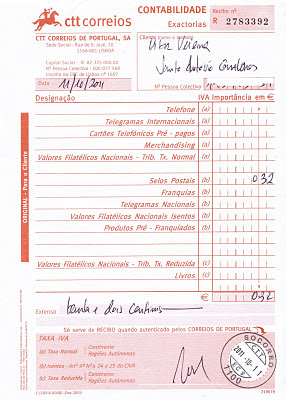 ctt correios
CONTABILIDADE
Recibo nº
Exactorias
R 2783392
CTT CORREIOS DE PORTUGAL, SA
Cliente (nome e morada)
Sede Social - Rua de S. José, 20
1166-001 LISBOA
Capital Social - € 87 325 000,00
Nº Pessoa Coletiva - 500 077 568
Nº Pessoa Coletiva
Data 11/10/2011
Designação IVA Importância em €
Telefone (a)
Telegramas Internacionais (a)
Cartões Telefónicos Pré - pagos (a)
Merchandising (a)
Valores Filatélicos Nacionais - Trib. Tx. Normal (a)
Selos Postais (b) 0 32
Franquias (b)
Telegramas Nacionais (b)
Valores Filatélicos Nacionais Isentos (b)
Produtos Pré - Franquiados (b)
Valores Filatélicos Nacionais - Trib. Tx. Reduzida (c)
Livros (c)
€ 0 32
Extenso trinta e dois centimos
Só serve de RECIBO quando autenticado pelos CORREIOS DE PORTUGAL
TAXA IVA
(a) Taxa Normal Continente
Regiões Autónomas
(b) Isentos - Artº 9º
(c) Taxa Reduzida Continente
Regiões Autónomas
SOCORRO
2011-10-11
CTT
1100
ORIGINAL - Para o Cliente